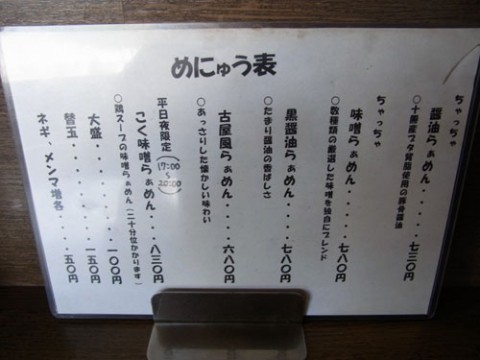 めにゅう表
ちゃっちゃ
醤油らぁめん・・・・七三〇円
〇十勝産ブタ背脂使用の豚骨醤油
ちゃっちゃ
味噌らぁめん・・・・七八〇円
〇数種類の厳選した味噌を独自にブレンド
黒醤油らぁめん・・・・七八〇円
〇たまり醤油の香ばしさ
古屋風らぁめん・・・・六八〇円
〇あっさりした懐かしい味わい
平日夜限定(17:00〜20:00)
こく味噌らぁめん・・・八三〇円
〇鶏スープの味噌らぁめん(二十分位かかります)
大盛・・・・・・・一〇〇円
替玉・・・・・・・一五〇円
ネギ、メンマ増各・・・一五〇円